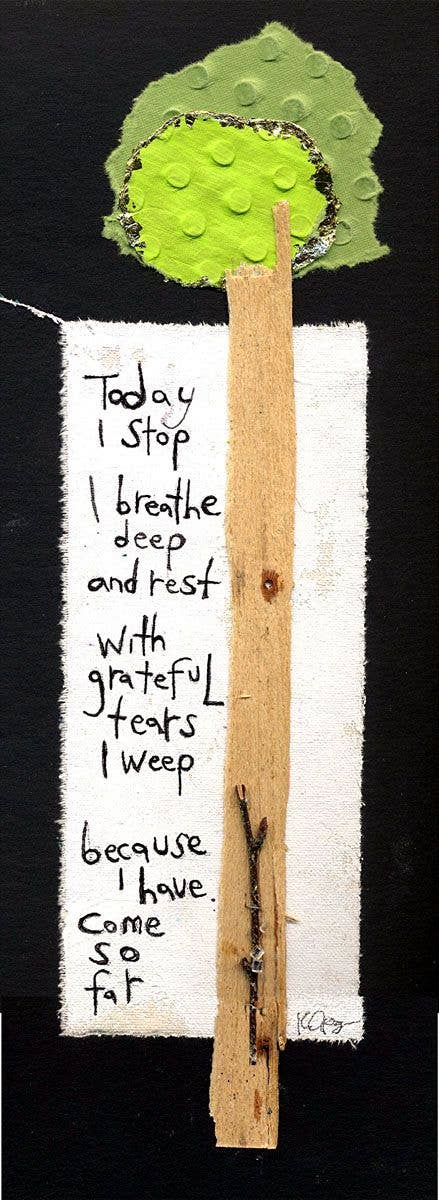 Today
I stop
I breathe
deep
and rest
with
grateful
tears
I weep
because
I have.
come
so
far